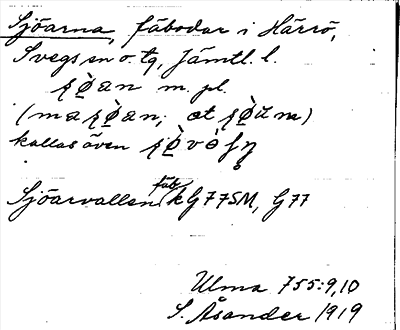 Sjöarna, fäbodar i Härrö,
Svegs sn o. tg, Jämtl. l.
m. pl.
kallas även
Sjöarvallen fäb k G77SM, G77
Ulma 755:9,10
S. Åsander 1919